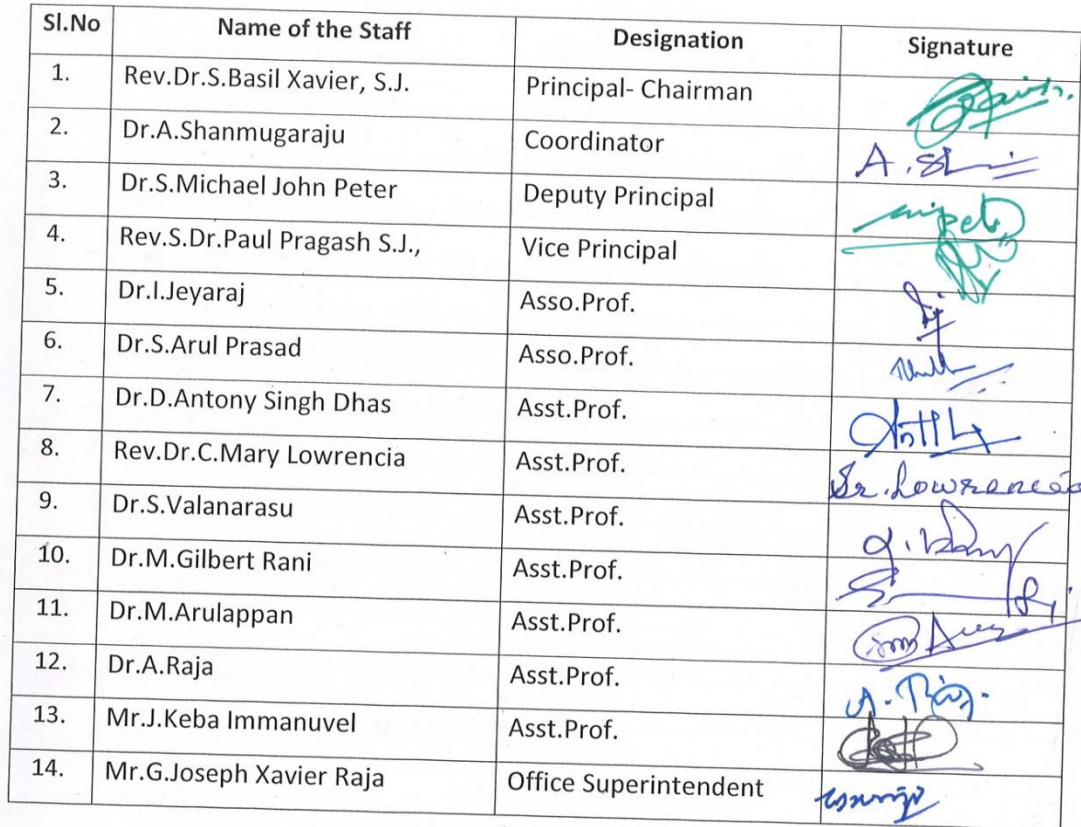 Sl.No Name of the Staff Designation Signature
1. Rev.Dr.S.Basil Xavier, S.J. Principal- Chairman
2. Dr.A.Shanmugaraju Coordinator
3. Dr.S.Michael John Peter Deputy Principal
4. Rev.S.Dr.Paul Pragash S.J., Vice Principal
5. Dr.I.Jeyaraj Asso.Prof.
6. Dr.S.Arul Prasad Asso.Prof.
7. Dr.D.Antony Singh Dhas Asst.Prof.
8. Rev.Dr.C.Mary Lowrencia Asst.Prof. Sr.Lowrencia
9. Dr.S.Valanarasu Asst.Prof.
10. Dr.M.Gilbert Rani Asst.Prof.
11. Dr.M.Arulappan Asst.Prof.
12. Dr.A.Raja Asst.Prof.
13. Mr.J.Keba Immanuvel Asst.Prof.
14. Mr.G.Joseph Xavier Raja Office Superintendent